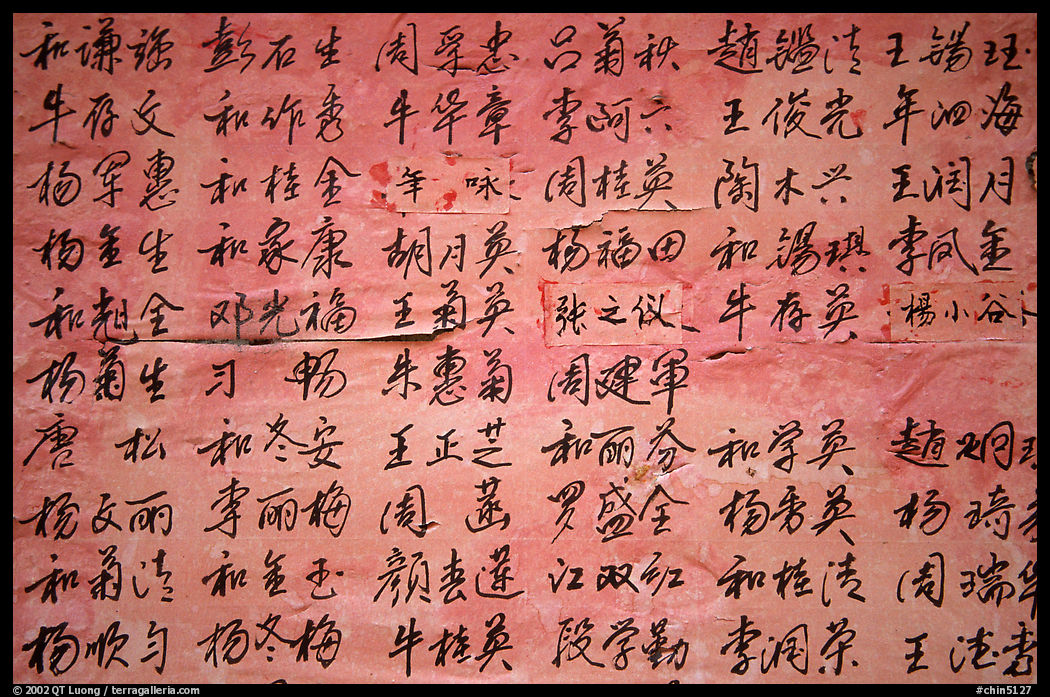 和谦强 彭石生 周采忠 吕菊秋 趙鑑清 王锡珏
牛存文 和作秀 牛华章 李阿六 王俊光 年泗海
杨军惠 和桂金 年咏 周桂英 陶木兴 王润月
杨金生 和家康 胡月英 杨福田 和锡琪 李凤金
和 全 邓光福 王菊英 张之仪 牛存英 楊小谷
杨菊生 习畅 朱惠菊 周建军
唐松 和冬安 王正芝 和丽芬 和学英 趙炯
杨文丽 李丽梅 周莲 罗盛全 杨秀英 杨琦
和菊清 和金玉 顏春莲 江双红 和桂清 周瑞华
杨顺匀 杨冬梅 牛桂英 段学勤 李润荣 王
© 2002 QT Luong / terragalleria.com #chin5127